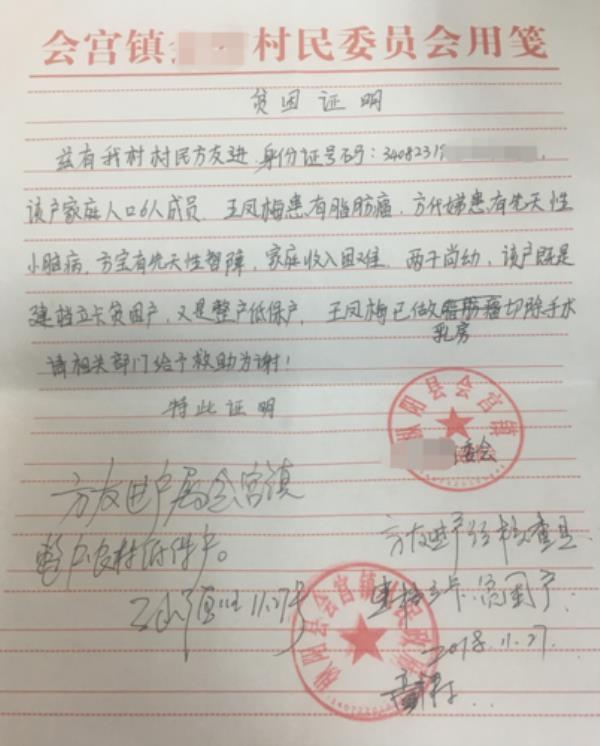 会宫镇 村民委员会用笺
贫困证明
兹有我村村民方友进 身份证号码：3408231
该户家庭人口6人成员、王凤梅患有脂肪瘤、方代娣患有先天性
心脏病、方宝有先天性智障、家庭收入困难、两子尚幼、该户既是
建档立卡贫困户、又是整户低保户、王凤梅已做脂肪瘤切除手术
乳房
请相关部门给予救助为谢！
特此证明
枞阳县会宫镇
委会
方友进户属会宫镇
整户农村低保户。
11.27号
方友进户经核查是
建档立卡贫困户.
2018.11.27.
枞阳县会宫镇人民政府